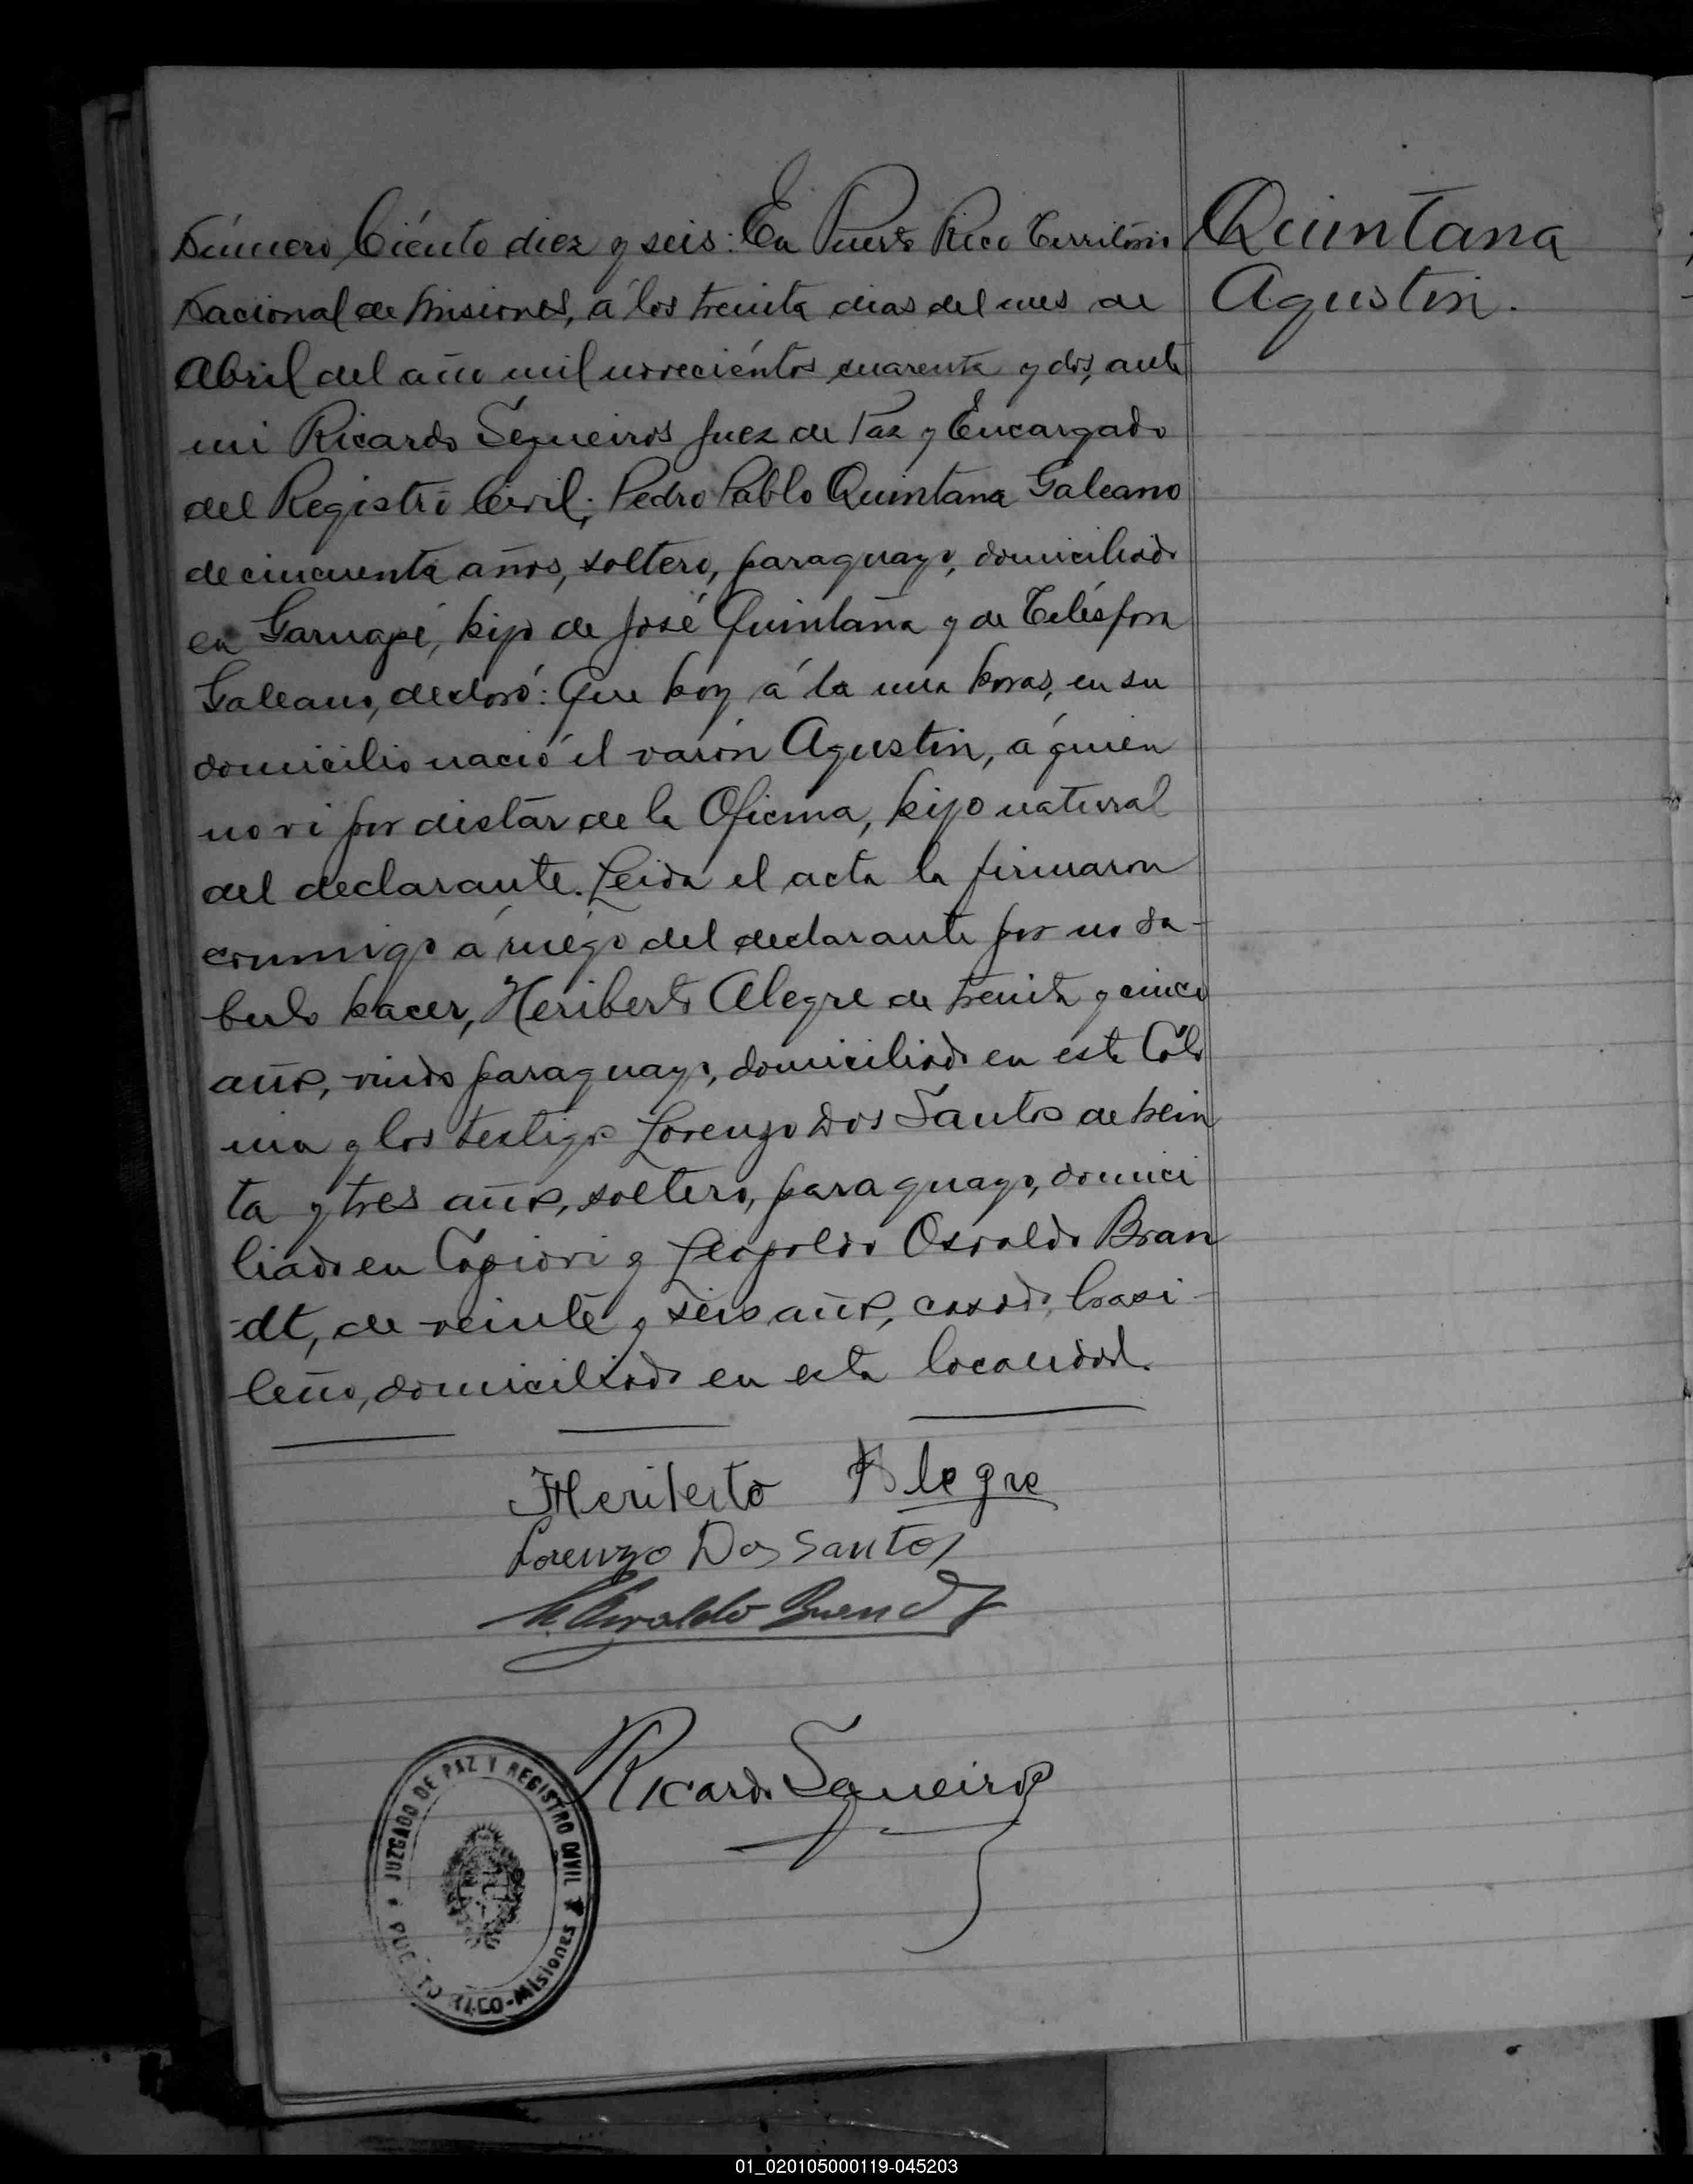 Número Ciénto diez y seis: En Puerto Rico Territorio
Nacional de Misiones, á los treinta dias del mes de
Abril del año mil novecientos cuarenta y dos, ante
mi Ricardo Sequeiros Juez de Paz y Encargado
del Registro Civil; Pedro Pablo Quintana Galeano
de cincuenta años, soltero, paraguayo, domiciliado
en Garuapé, hijo de José Quintana y de Telésfora
Galeano, declaró: Que hoy á la una horas, en su
domicilio nació el varón Agustin, á quien
no vi por distar de la Oficina, hijo natural
del declarante. Leida el acta la firmaron
conmigo á ruego del declarante por no sa-
berlo hacer, Heriberto Alegre de treinta y cinco
años, viudo paraguayo, domiciliado en esta Colo
nia y los testigos Lorenzo Dos Santos de trein
ta y tres años, soltero, paraguayo, domici
liado en Capiovi y Leopoldo Osvaldo Bran
-dt, de veinte y seis años, casado, brasi-
leño, domiciliado en esta localidad.
Quintana
Agustin.
Heriberto Alegre
Lorenzo Dos Santos
L. Osvaldo Brandt
Ricardo Sequeiros
JUZGADO DE PAZ Y REGISTRO CIVIL
PUERTO RICO-Misiones
01_020105000119-045203